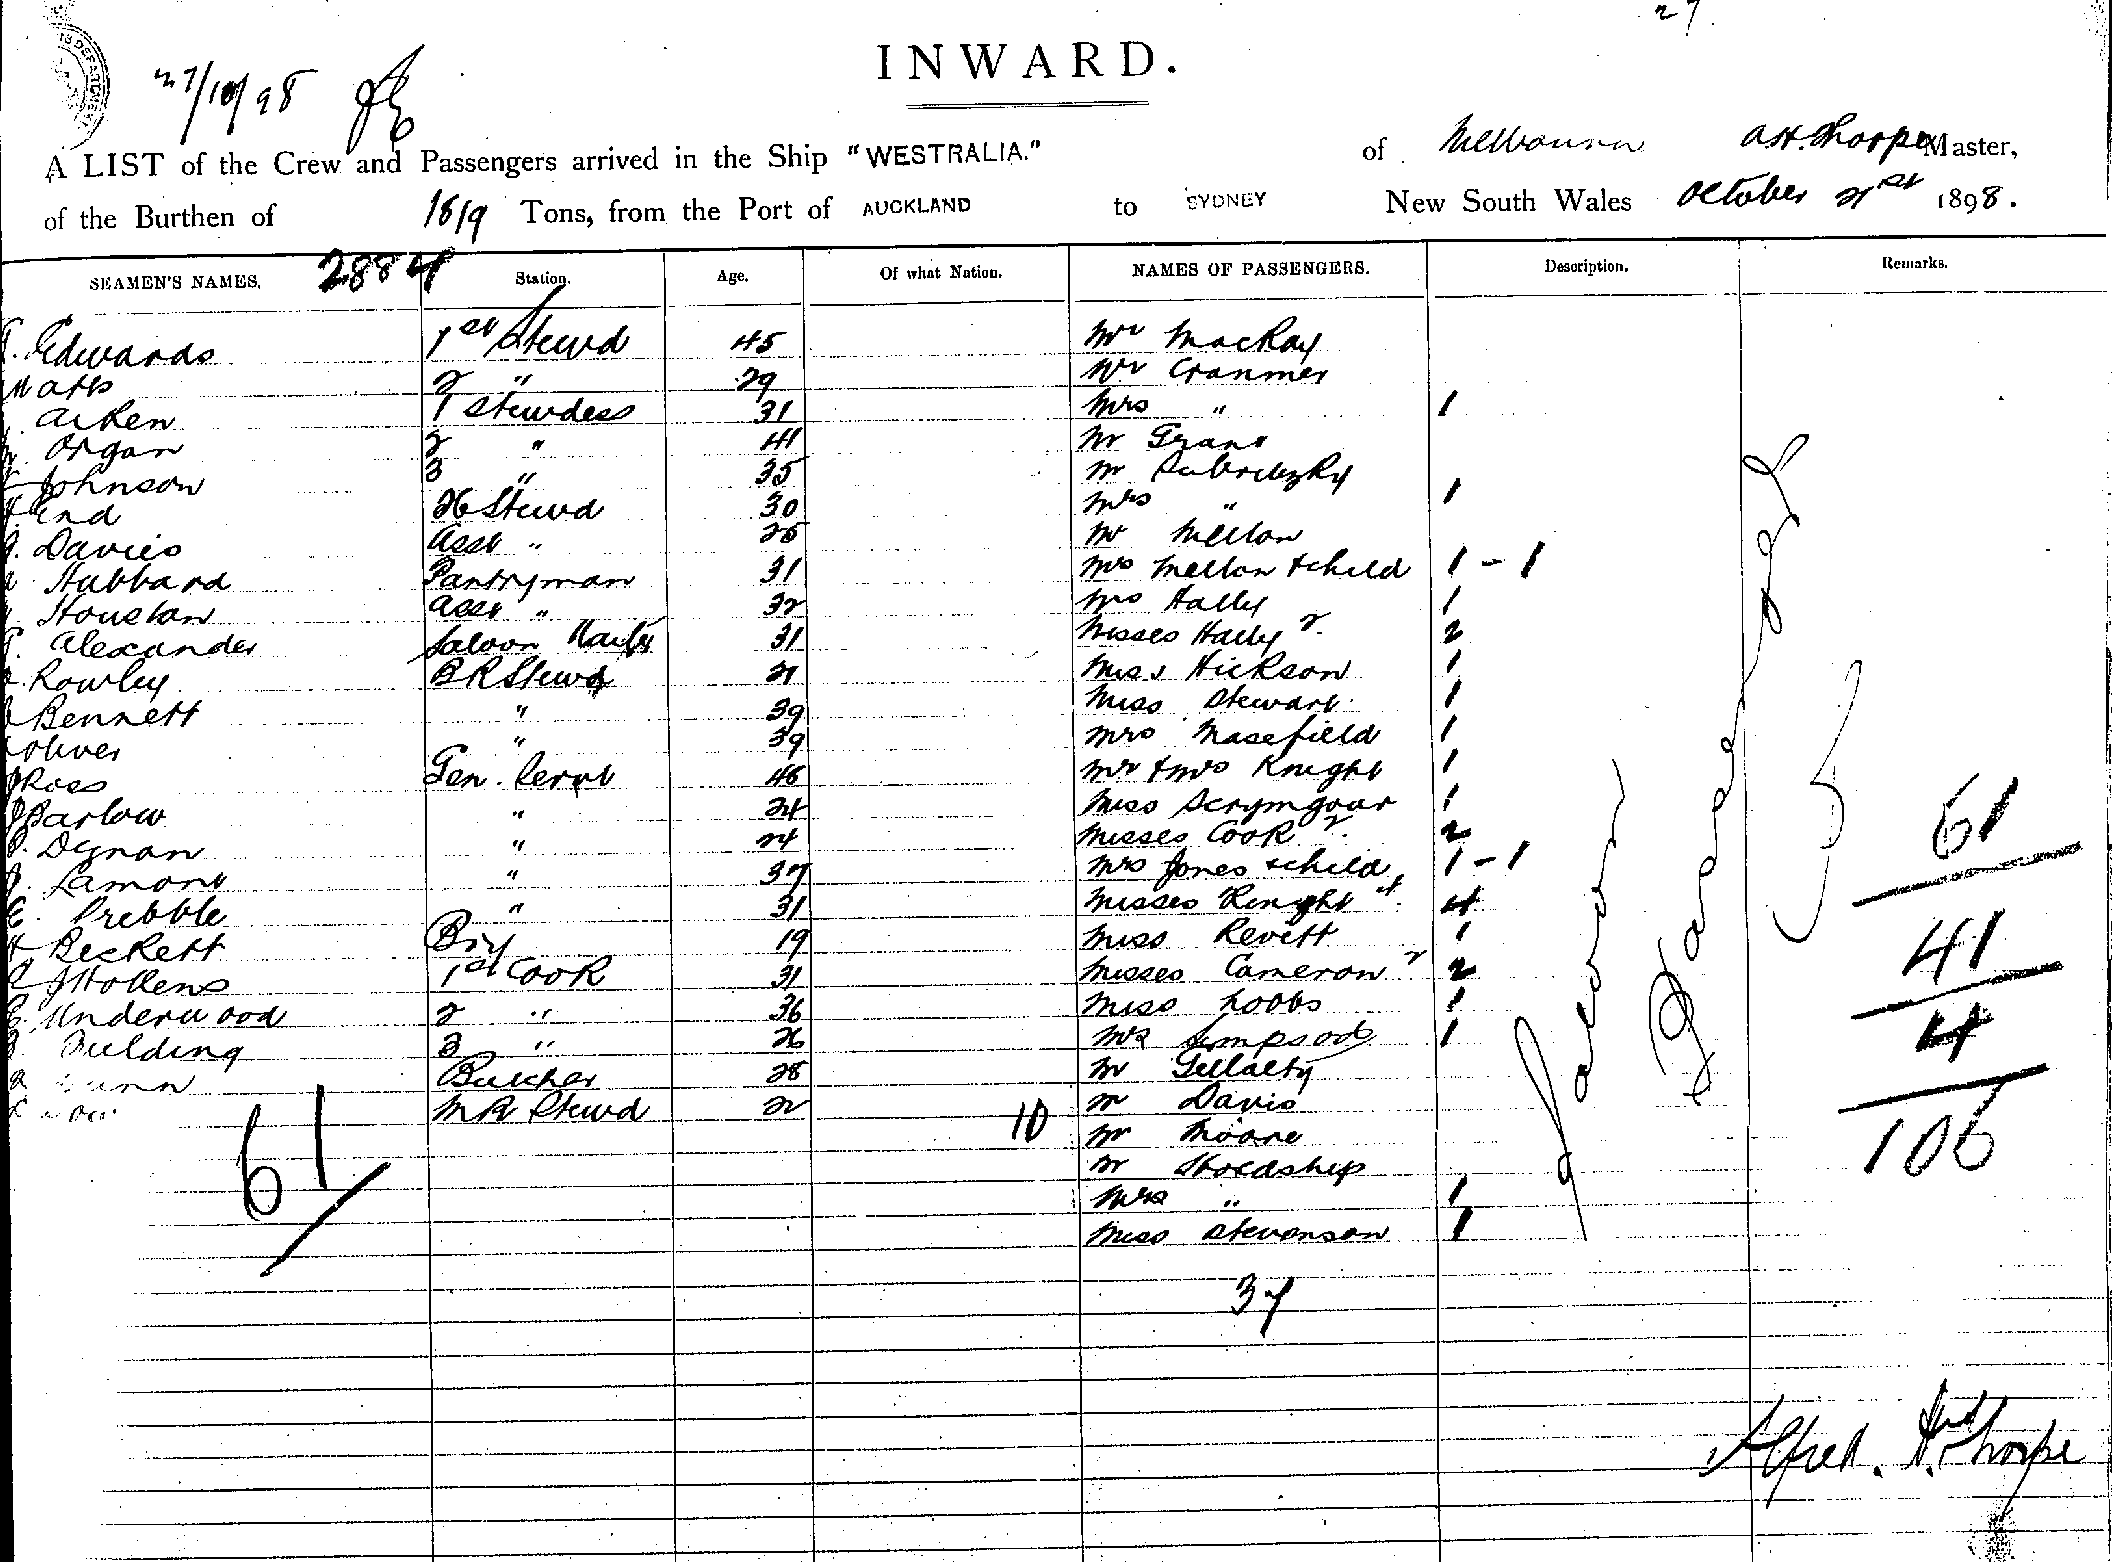 27.
INWARD.
27/10/98
A LIST of the Crew and Passengers arrived in the Ship "WESTRALIA." of Melbourne A.H. Thorpe Master,
of the Burthen of 1819 Tons, from the Port of AUCKLAND to SYDNEY New South Wales October 21st 1898.
SEAMEN'S NAMES. 2884 Station. Age. Of what Nation. NAMES OF PASSENGERS. Description. Remarks.
Edwards 1st Stewd 45 Mr MacKay
Watts 2 " 29 Mr Cranmer
Aiken 1 Stewdess 31 Mrs " 1
Organ 2 " 41 Mr Grant
Johnson 3 " 35 Mr Subritzky
End 2C Stewd 30 Mrs " 1
Davies Asst " Mr Mellon
Hubbard Pantryman 31 Mrs Mellon & child 1 - 1
Houston Asst " 32 Mrs Hally 1
Alexander Saloon Waiter 31 Misses Hally 2. 2
Rowley BR Stewd 21 Miss Hickson 1
Bennett " 39 Miss Stewart 1
Oliver " 39 Mrs Masefield 1
Ross Gen. Servt 46 Mr & Mrs Knight 1
Barlow " 24 Miss Scrymgour 1
Dynan " 24 Misses Cook 2. 2
Lamont " 37 Mrs Jones & child 1 - 1
Pribble " 31 Misses Knight 4. 4
Beckett Boy 19 Miss Revett 1
J Hollens 1st Cook 31 Misses Cameron 2 2
Underwood 2 " 36 Miss Hobbs 1
Building 3 " 26 Mrs Simpson 1
Butcher 28 Mr Gellatly
MR Stewd 22 Mr Davis
10 Mr Moore
Mr Stoedship
Mrs " 1
Miss Stevenson 1
61
37
Saloon Passengers
61
41
4
106
Alfred. H. Thorpe